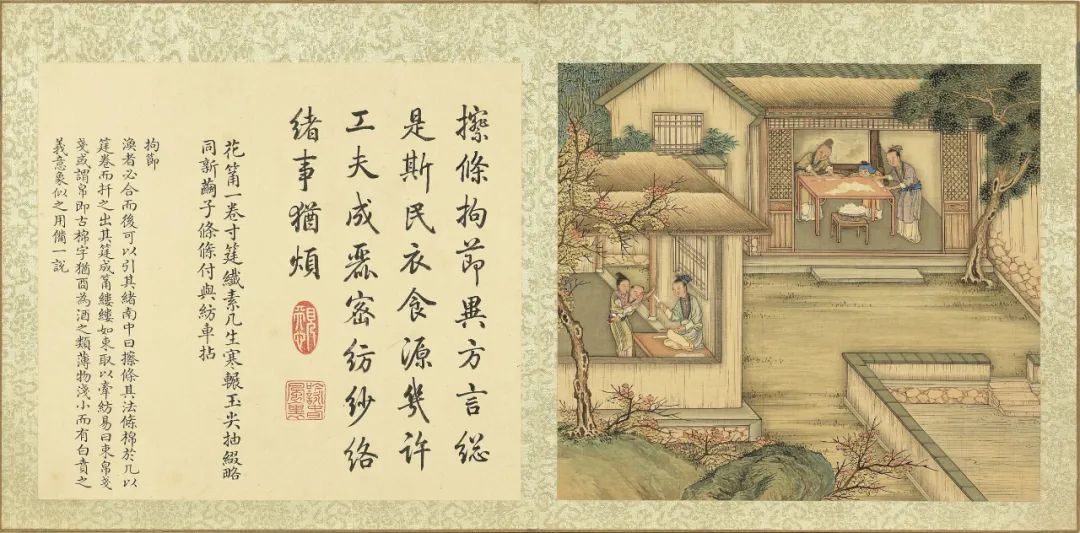 擦條拘節異方言総
是斯民衣食源幾許
工夫成密紡紗絡
緒事猶煩
花筩一卷寸筳纖素几生寒輾玉尖抽綴略
同新繭子條條付與紡車拈
拘節
渙者必合而後可以引其緒南中曰擦條其法條棉於几以
筳卷而扞之出其筳成筩縷縷如束取以牽紡易曰束帛戔
戔或謂帛即古棉字猶酉為酒之類薄物淺小而有白賁之
義意象似之用備一說